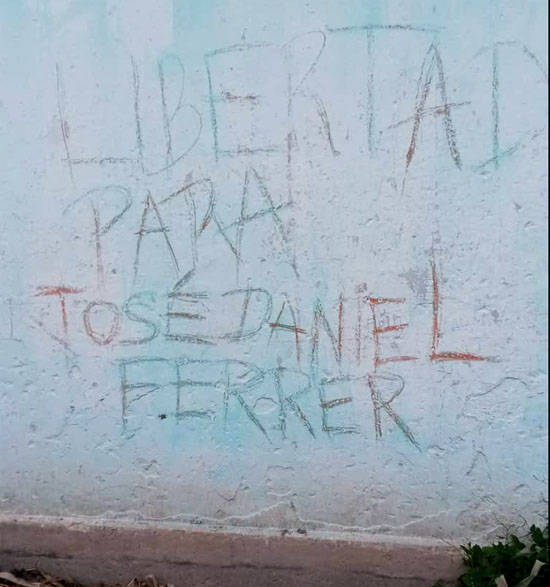 LIBERTAD
PARA
JOSÉ DANIEL
FERRER